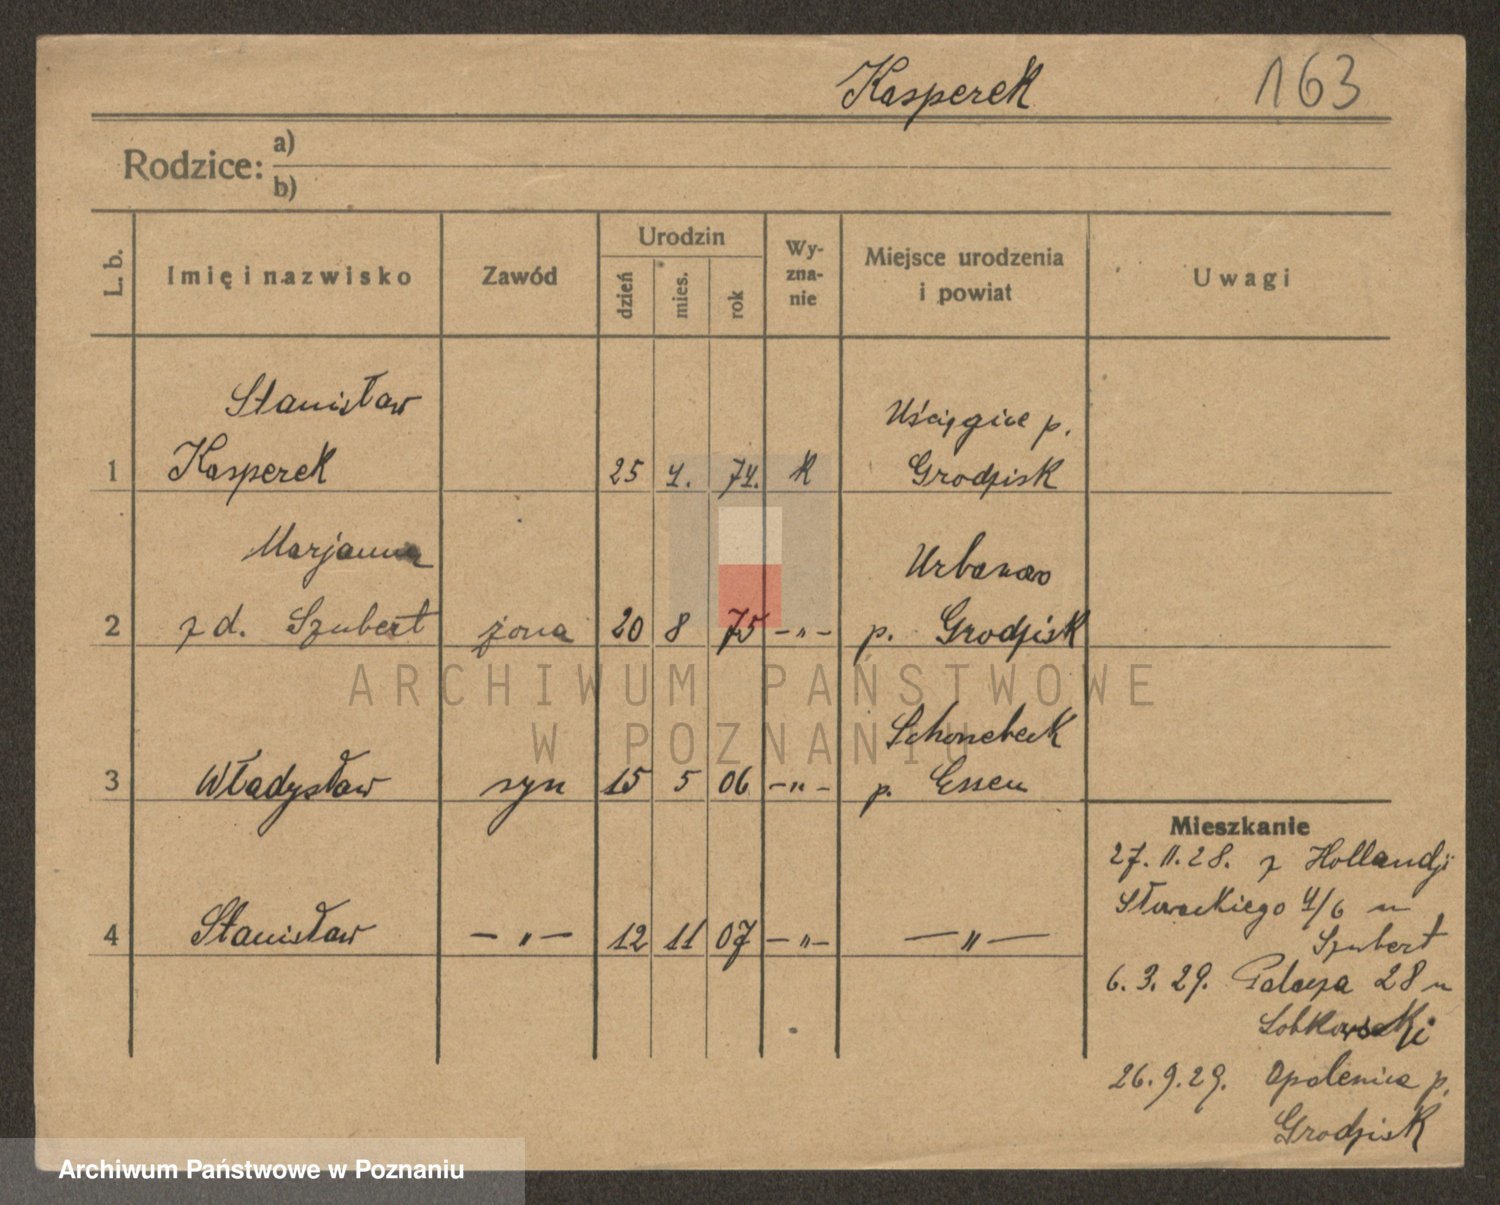 Kasperek
163
Rodzice: a)
b)
L. b.
Imię i nazwisko
Zawód
Urodzin
dzień
mies.
rok
Wy-
zna-
nie
Miejsce urodzenia
i powiat
Uwagi
Stanisław
Uścięgice p.
1 Kasperek 25 4. 74. K Grodzisk
Marjanna
Urbanowo
2 z d. Szubert żona 20 8 75 -"- p. Grodzisk
Schonebeck
3 Władysław syn 15 5 06 -"- p. Essen
4 Stanisław -"- 12 11 07 -"- -"-
Mieszkanie
27. 11. 28. z Hollandji
Słowackiego 4/6 u
Szubert
6. 3. 29. Palacza 28 u
26. 9. 29. Opalenica p.
Grodzisk
ARCHIWUM PAŃSTWOWE
W POZNANIU
Archiwum Państwowe w Poznaniu